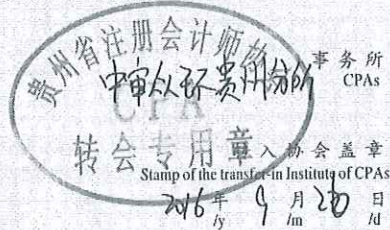 贵州省注册会计师协
中审众环贵州分所 事务所
CPAs
CPA
转会专用章
转入协会盖章
Stamp of the transfer-in Institute of CPAs
2016年 9月 20日
/y /m /d